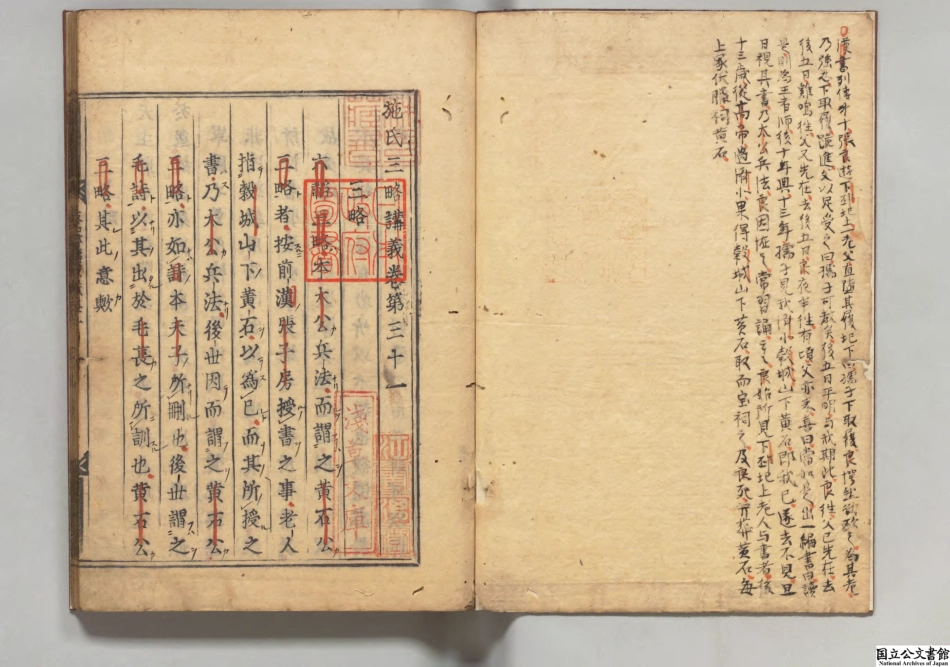 漢書列傳第十張良遊下邳圯上一老父直堕其履圯下謂孺子下取履良愕然欲歐之為其老
乃強忍下取履跪進父以足受之曰孺子可教矣後五日平明与我期此良往父已先在去
後五日雞鳴往父又先在去後五日良夜半往有頃父亦来喜曰當如是出一編書曰讀
是則為王者師後十年興十三年孺子見我済北穀城山下黄石即我已遂去不見旦
日視其書乃太公兵法良因怪之常習誦之良始所見下邳圯上老人与書者後
十三歳従高帝過済北果得穀城山下黄石取而宝祠之及良死并葬黄石毎
上冢伏臘祠黄石
施氏三略講義卷第三十一
三略
六韜三略本太公兵法而謂之黄石公
三略者按前漢張子房授書之事老人
指穀城山下黄石以為已而其所授之
書乃太公兵法後世因而謂之黄石公
三略亦如詩本夫子所刪也後世謂之
毛詩以其出於毛萇之所訓也黄石公
三略其此意歟
国立公文書館
National Archives of Japan